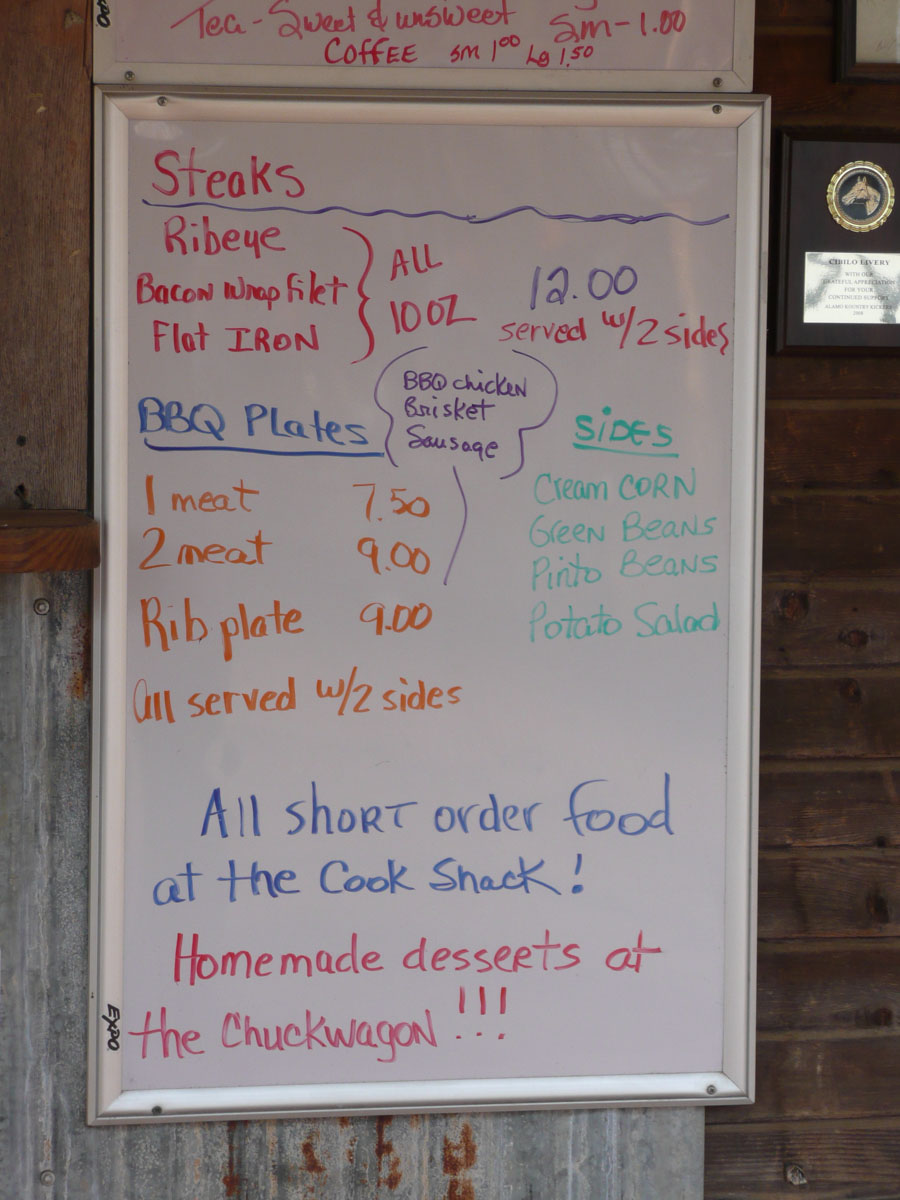 Tea-Sweet & unsweet Sm-1.00
COFFEE sm 1.00 Lg 1.50
Steaks
Ribeye
Bacon Wrap filet
Flat IRON
ALL
10OZ
12.00
served w/2 sides
BBQ Plates
BBQ chicken
Brisket
Sausage
1 meat 7.50
2 meat 9.00
Rib plate 9.00
all served w/2 sides
SIDES
Cream CORN
Green Beans
Pinto Beans
Potato Salad
All short order food
at the Cook Shack!
Homemade desserts at
the Chuckwagon!!!
EXPO
EXPO
CIBILO LIVERY
WITH OUR
GRATEFUL APPRECIATION
FOR YOUR
CONTINUED SUPPORT
ALAMO KOUNTRY KICKERS
2008